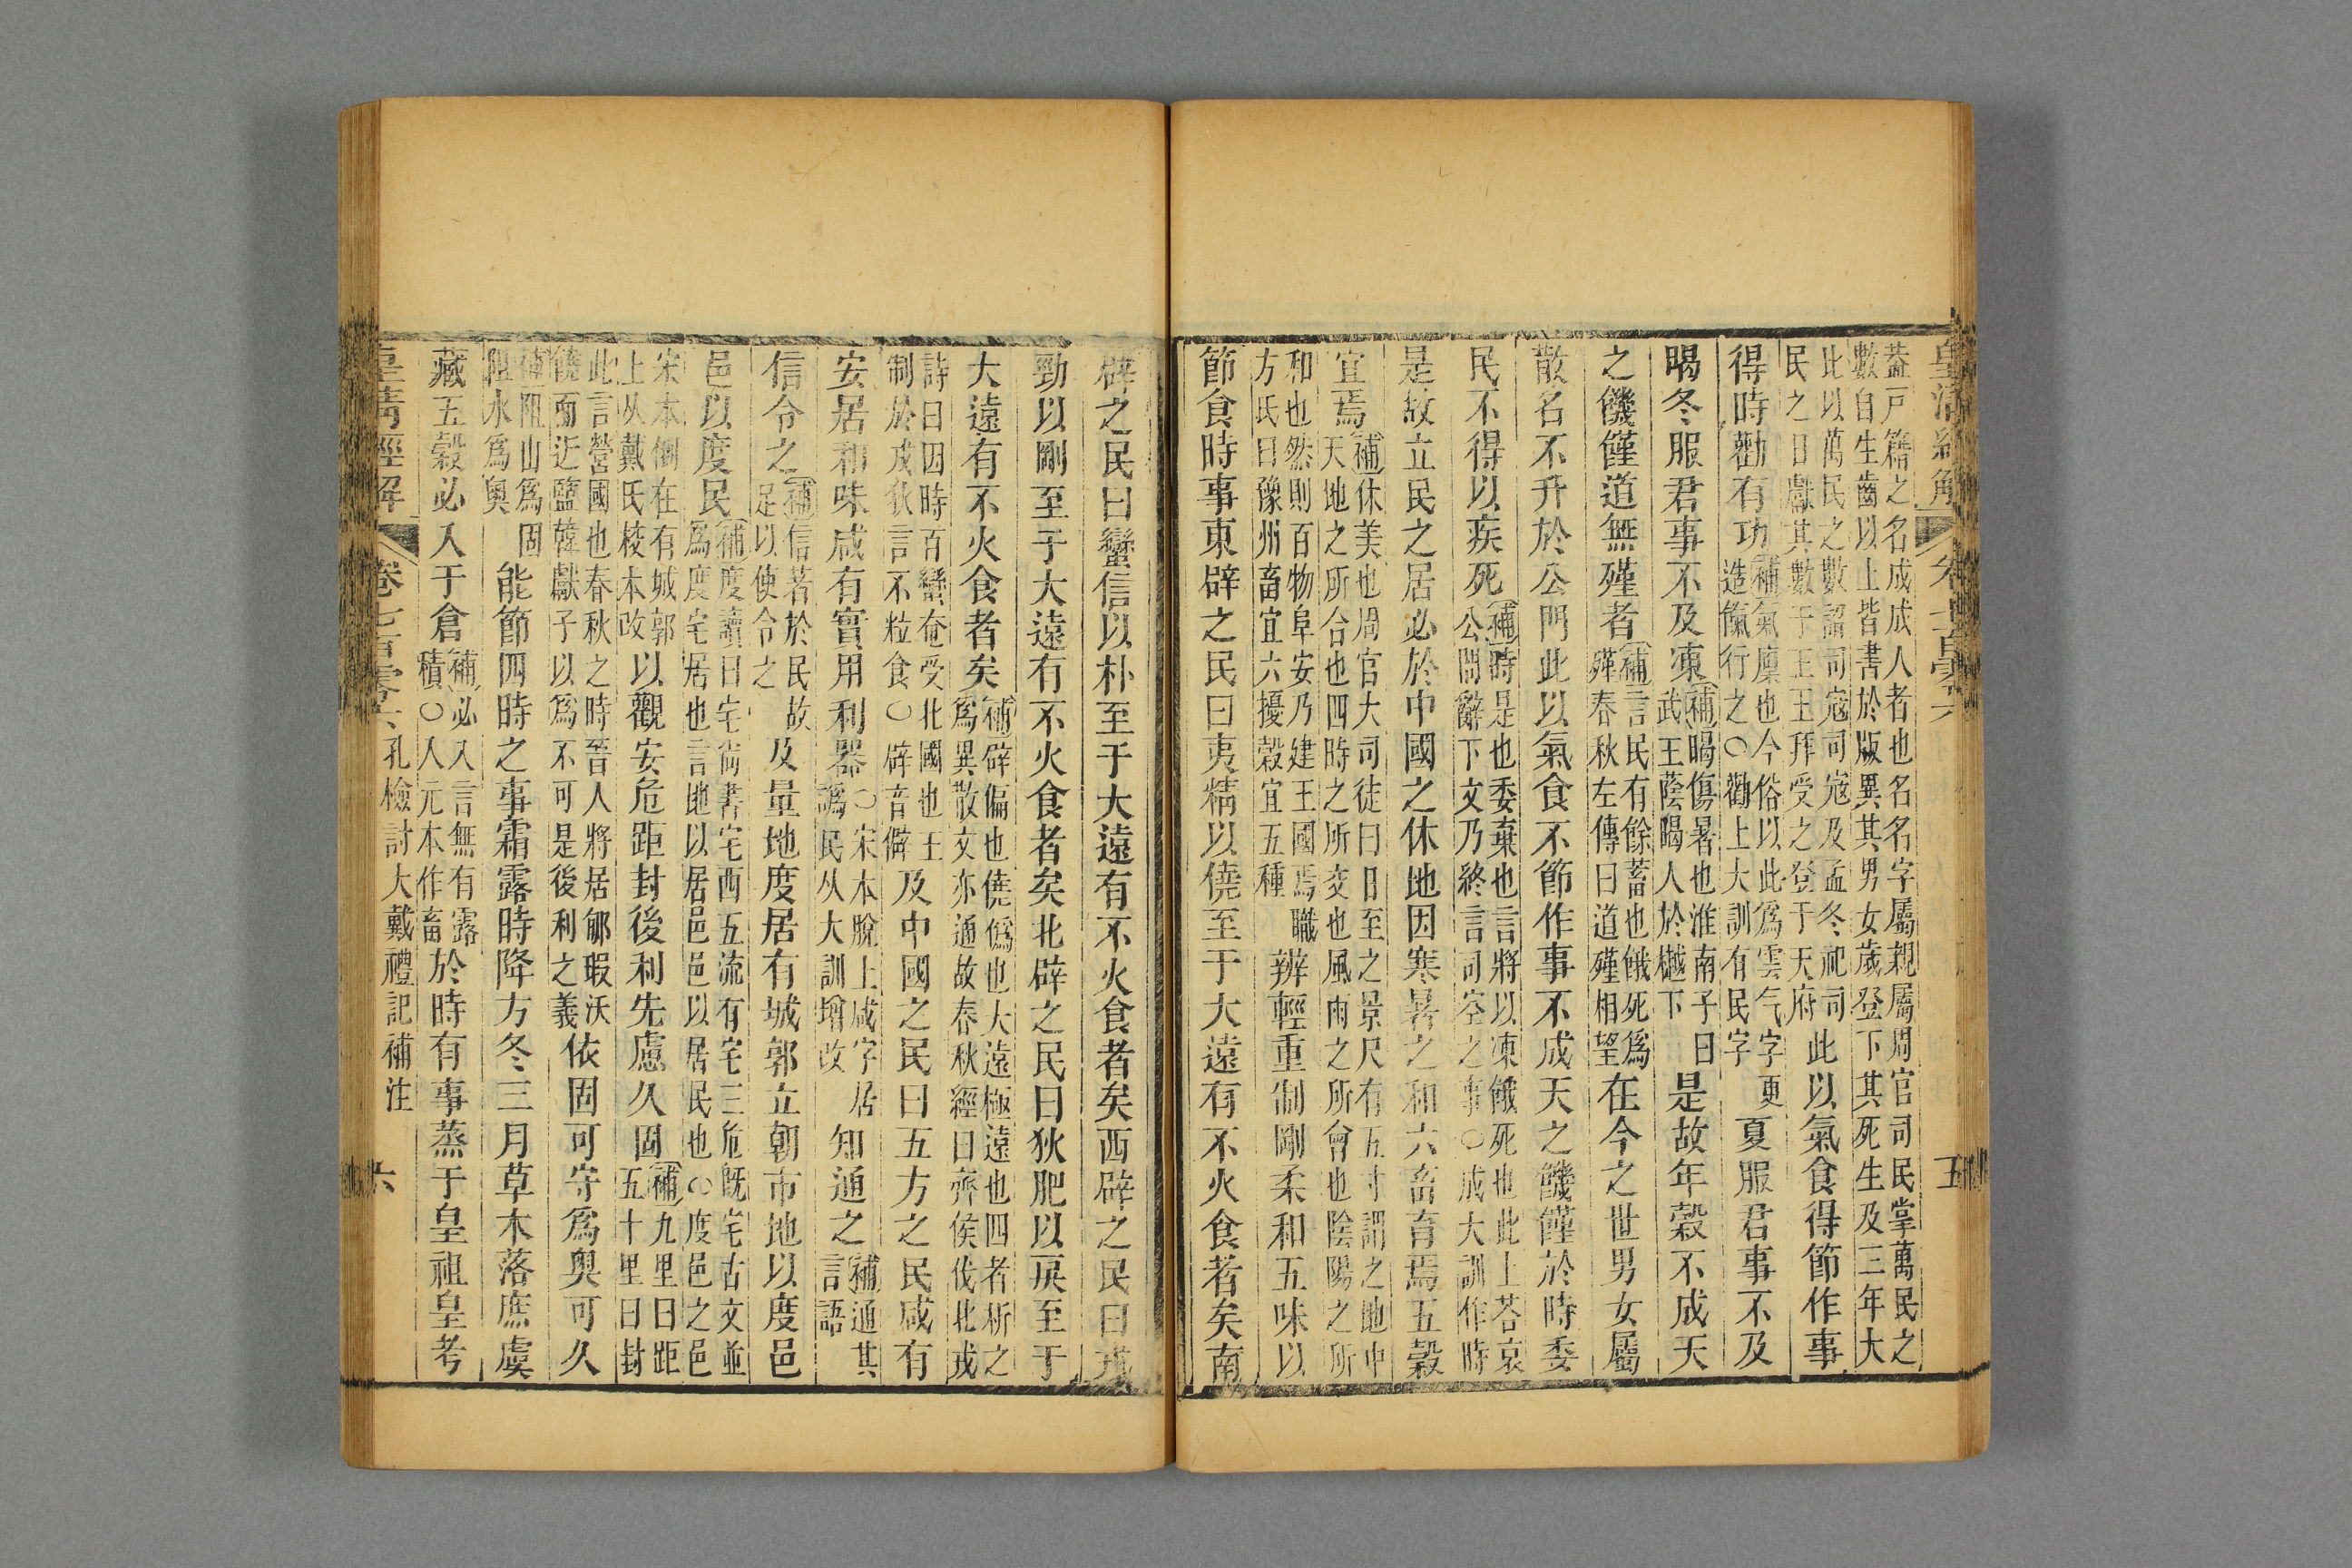 皇清經解 卷七百零六 五
蓋戸籍之名成成人者也名名字屬親屬周官司民掌萬民之
數自生齒以上皆書於版異其男女歲登下其死生及三年大
此以萬民之數詔司寇司寇及孟冬祀司
民之日獻其數于王王拜受之登于天府
此以氣食得節作事
得時勸有功
補氣廩也今俗以此爲雲气字更
造餼行之○勸上大訓有民字
夏服君事不及
暍冬服君事不及凍
補暍傷暑也淮南子曰
武王蔭暍人於樾下
是故年穀不成天
之饑僅道無殣者
補言民有餘蓄也餓死爲
殣春秋左傳曰道殣相望
在今之世男女屬
散名不升於公門此以氣食不節作事不成天之饑僅於時委
民不得以疾死
補時是也委棄也言將以凍餓死也此上荅哀
公問辭下文乃終言司空之事○成大訓作時
是故立民之居必於中國之休地因寒暑之和六畜育焉五穀
宜焉
補休美也周官大司徒曰日至之景尺有五寸謂之地中
天地之所合也四時之所交也風雨之所會也陰陽之所
和也然則百物阜安乃建王國焉職
方氏曰豫州畜宜六擾穀宜五種
辨輕重制剛柔和五味以
節食時事東辟之民曰夷精以僥至于大遠有不火食者矣南
辟之民曰蠻信以朴至于大遠有不火食者矣西辟之民曰戎
勁以剛至于大遠有不火食者矣北辟之民曰狄肥以戾至于
大遠有不火食者矣
補辟偏也僥僞也大遠極遠也四者析之
爲異散文亦通故春秋經曰齊侯伐北戎
詩曰因時百蠻奄受北國也王
制於戎狄言不粒食○辟音僻
及中國之民曰五方之民咸有
安居和味咸有實用利器
○宋本脫上咸字居
譌民从大訓增改
知通之
補通其
言語
信令之
補信著於民故
足以使令之
及量地度居有城郭立朝市地以度邑
邑以度民
補度讀曰宅尚書宅西五流有宅三危既宅古文並
爲度宅居也言地以居邑邑以居民也○度邑之邑
宋本倒在有城郭
上从戴氏校本改
以觀安危距封後利先慮久固
補九里曰距
五十里曰封
此言營國也春秋之時晉人將居郇瑕沃
饒而近鹽韓獻子以爲不可是後利之義
依固可守爲奥可久
補阻山爲固
阻水爲奥
能節四時之事霜露時降方冬三月草木落庶虞
藏五穀必入于倉
補必入言無有露
積○人元本作畜
於時有事蒸于皇祖皇考
皇清經解 卷七百零六 孔檢討大戴禮記補注 六